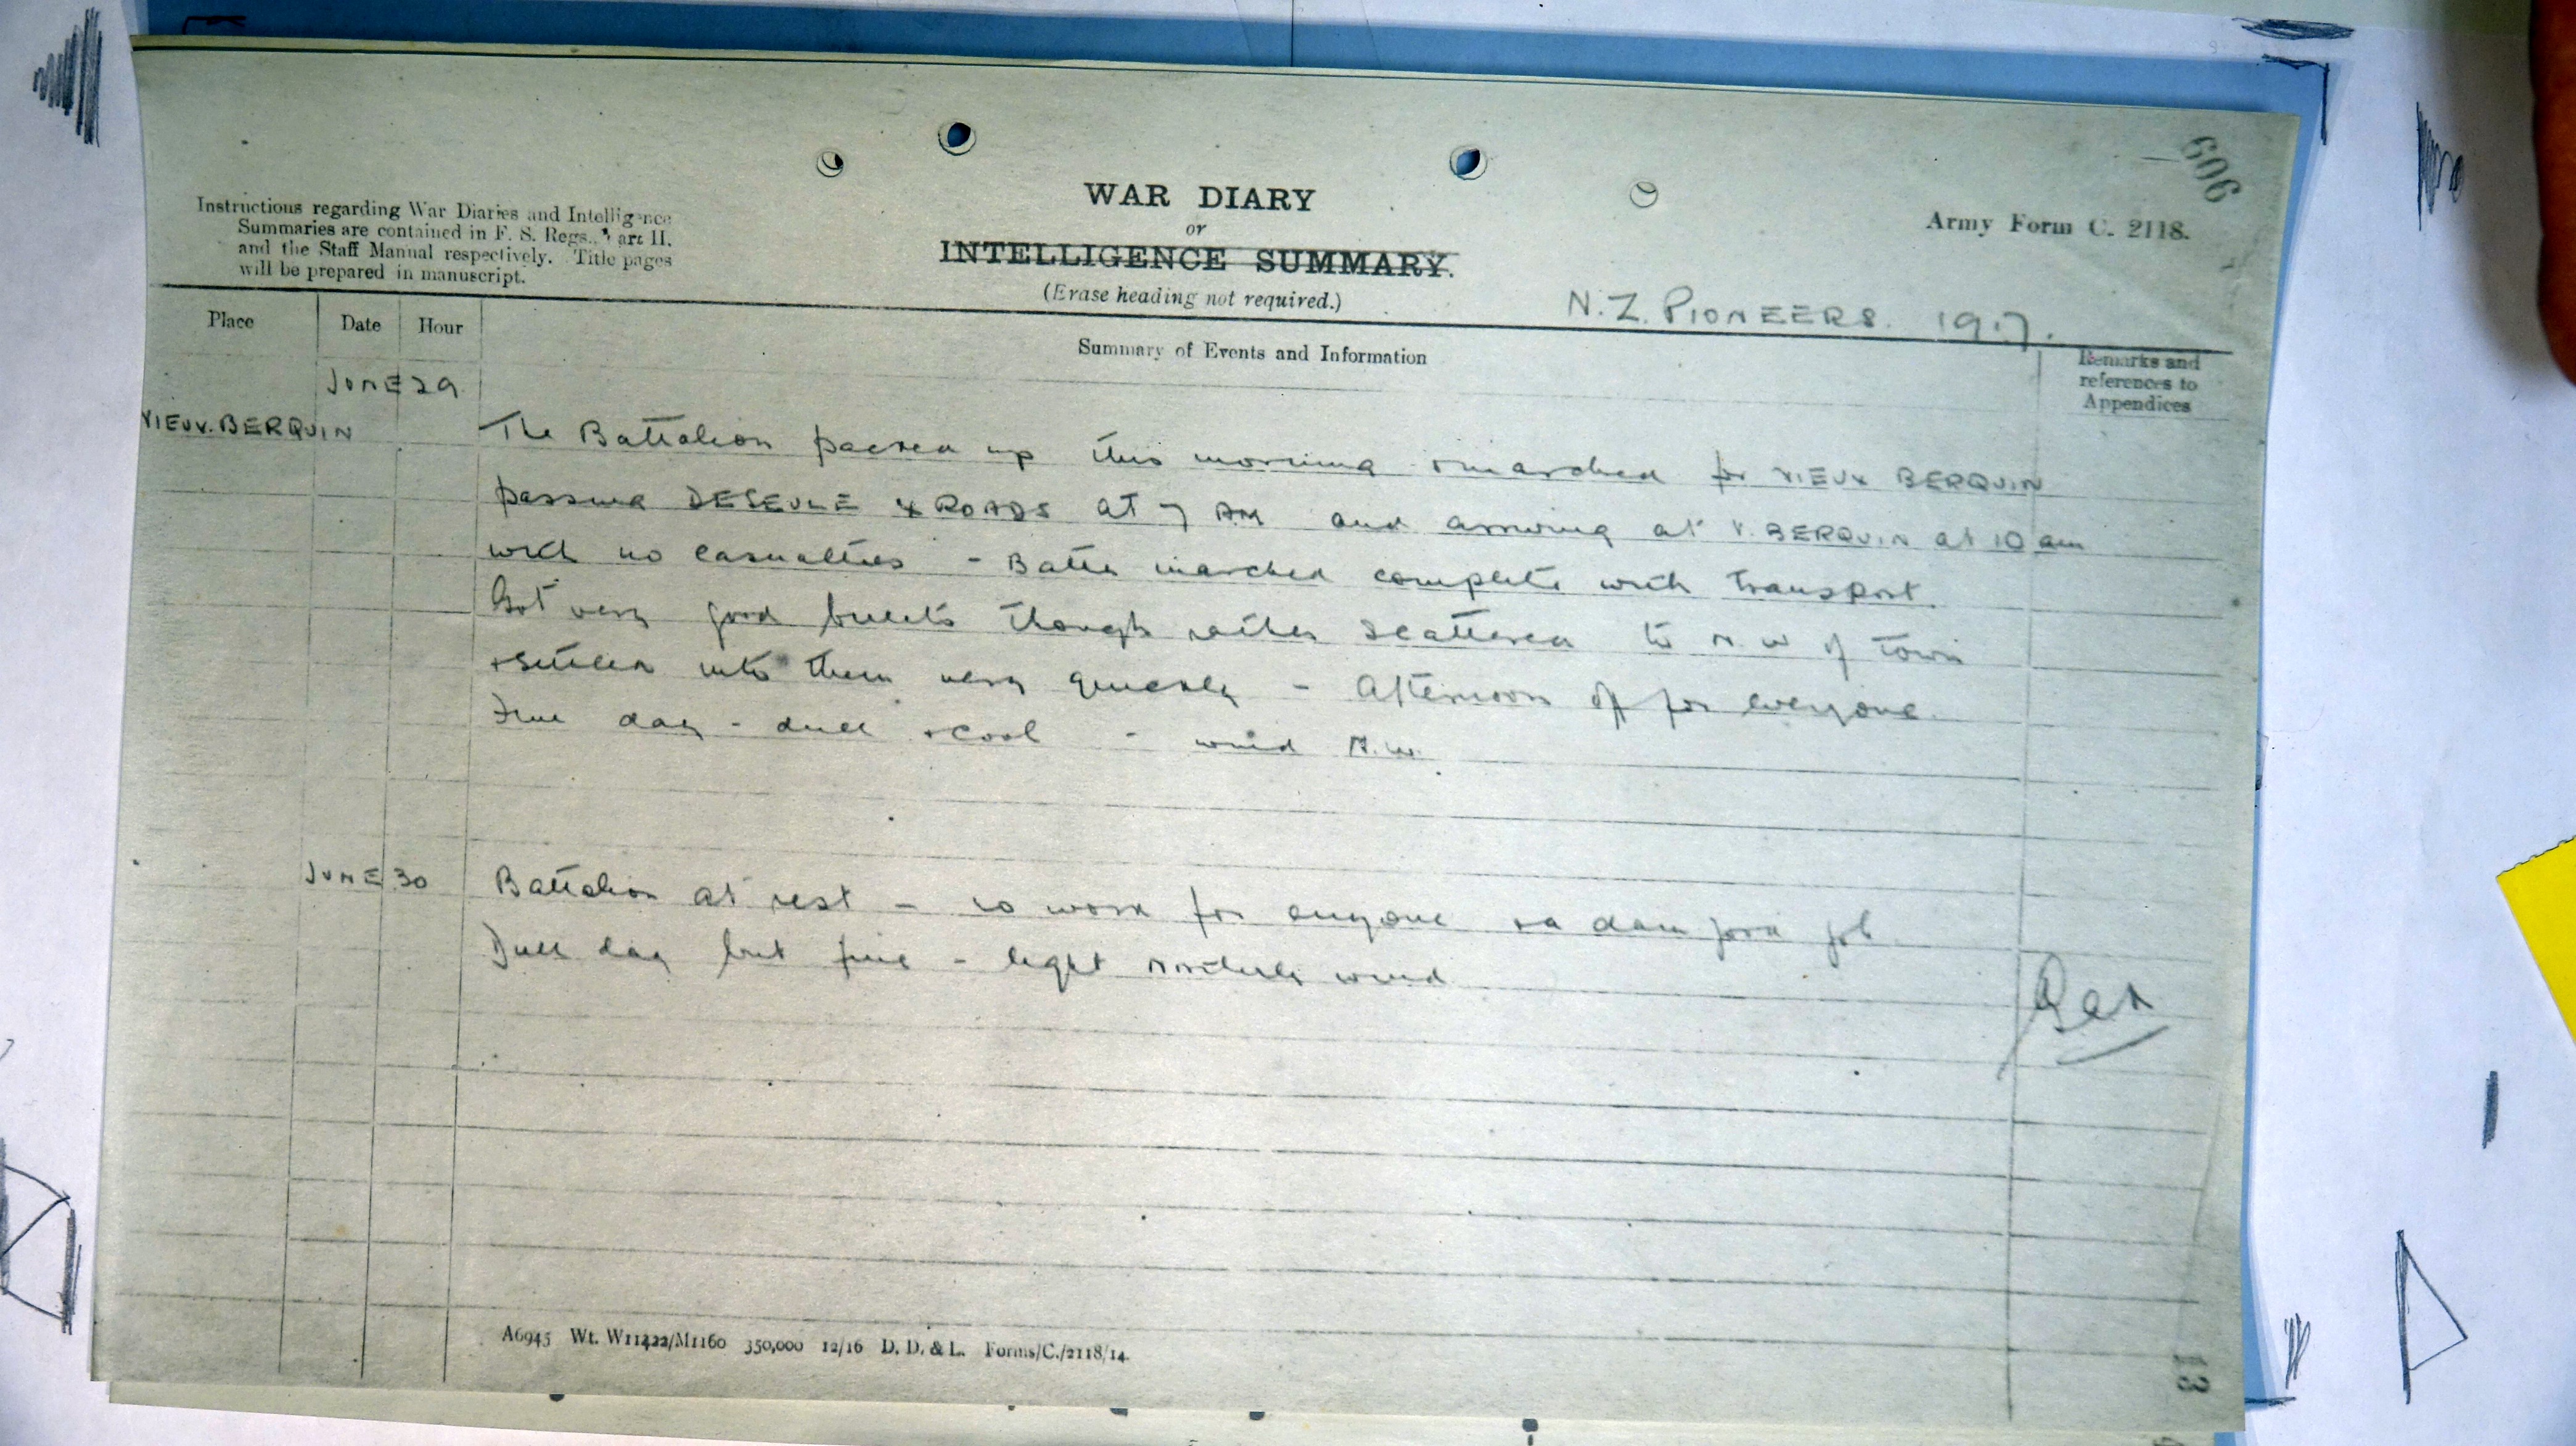 606
Instructions regarding War Diaries and Intelligence
Summaries are contained in F. S. Regs., Part II.
and the Staff Manual respectively. Title pages
will be prepared in manuscript.
WAR DIARY
or
INTELLIGENCE SUMMARY.
(Erase heading not required.)
Army Form C. 2118.
N.Z. PIONEERS. 1917.
Place Date Hour
Summary of Events and Information
Remarks and
references to
Appendices
JUNE 29
VIEUX. BERQUIN
The Battalion packed up this morning & marched for VIEUX BERQUIN
passing DESEULE X ROADS at 7 AM and arriving at V. BERQUIN at 10 am
with no casualties - Battn marched complete with transport.
Got very good billets though rather scattered to N.W of Town
& settled into them very quickly - Afternoon off for everyone.
Fine day - dull & cool - wind N.W.
JUNE 30
Battalion at rest - no work for anyone & a dam good job
Dull day but fine - light northerly wind
A6945 Wt. W11422/M1160 350,000 12/16 D. D. & L. Forms/C./2118/14.
13